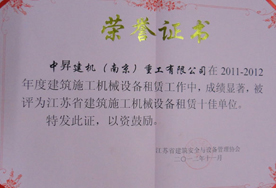 荣誉证书
中昇建机（南京）重工有限公司在2011-2012
年度建筑施工机械设备租赁工作中，成绩显著，被
评为江苏省建筑施工机械设备租赁十佳单位。
特发此证，以资鼓励。
江苏省建筑安全与设备管理协会
二〇一三年十一月